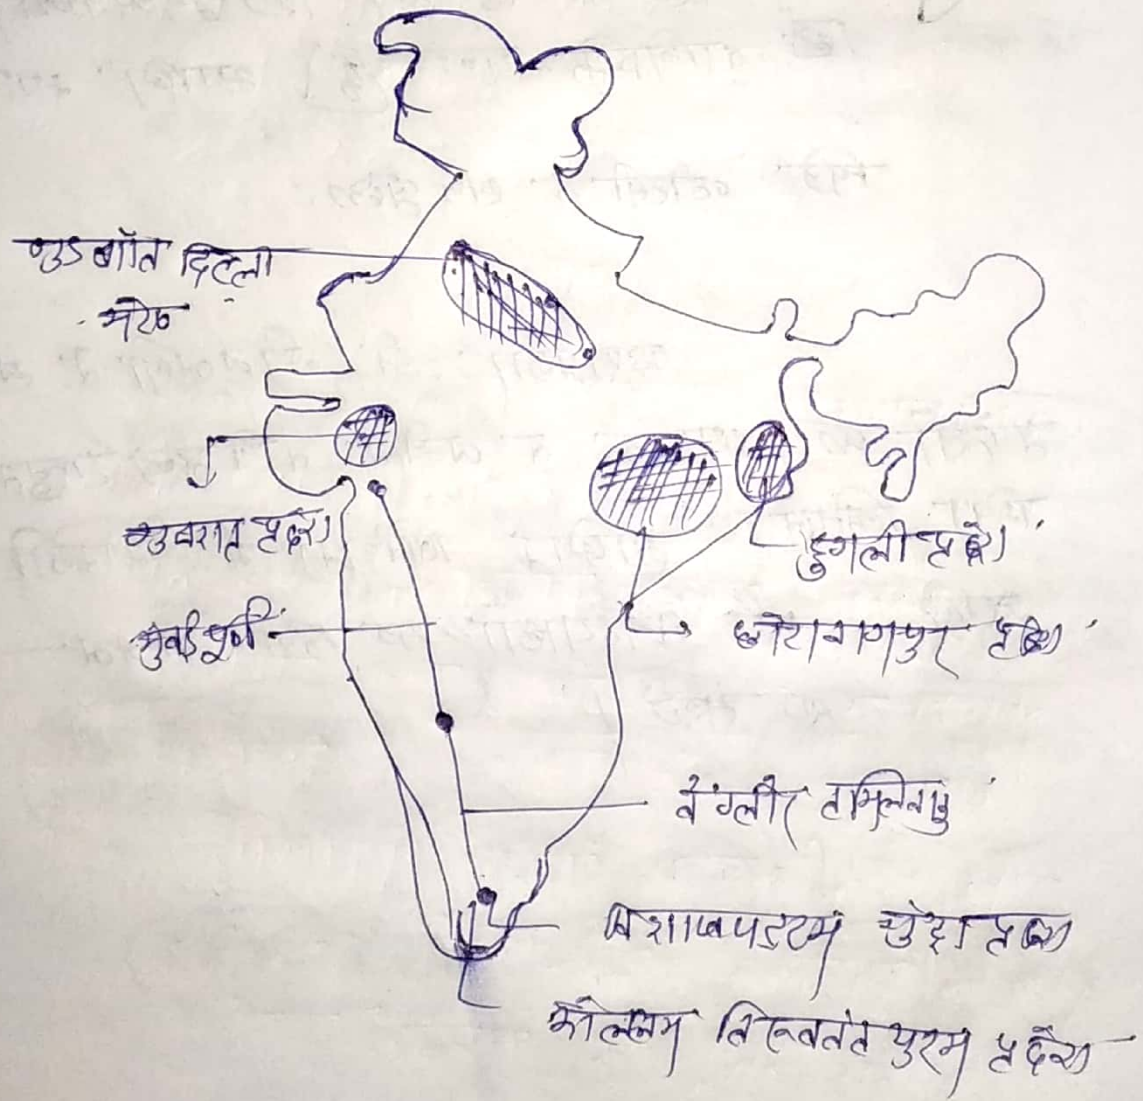 गुडगाँव दिल्ली
मेरठ
गुजरात प्रदेश
हुगली प्रदेश
मुंबई पूणे
छोटानागपुर प्रदेश
बेंग्लौर तमिलनाडु
विशाखापट्टम गुंटूर प्रदेश
कोल्लम तिरूवनंतपुरम प्रदेश